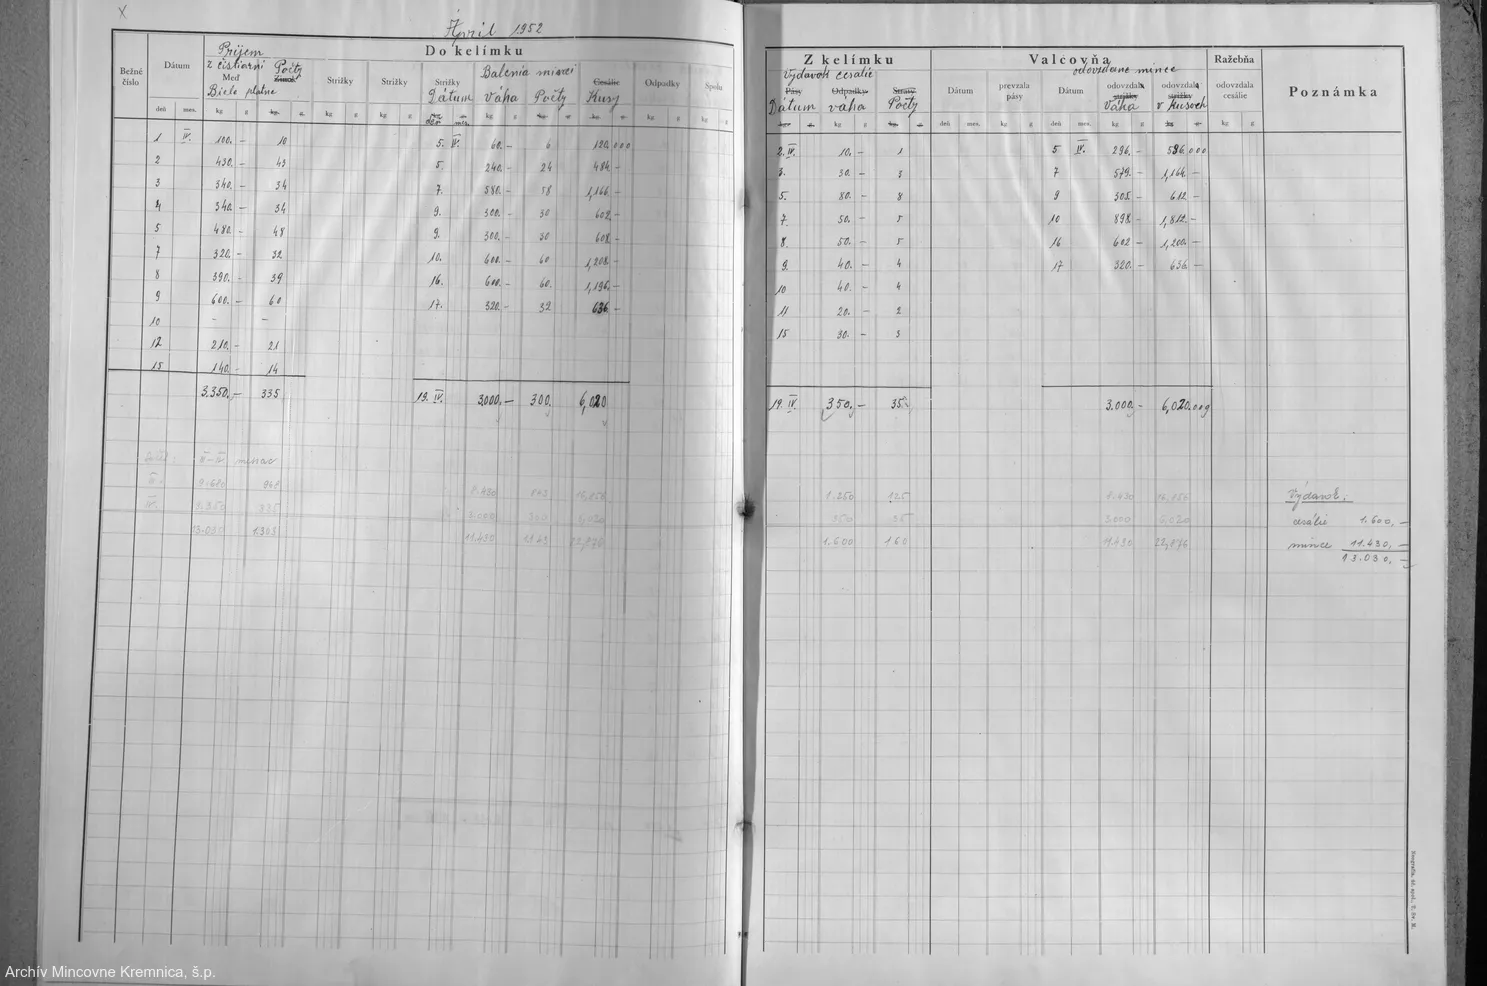 Április 1952
Do kelímku
Bežné číslo
Dátum
deň mes.
Príjem
z čistiarni Počty
Meď
Biele platne
kg g
Strižky
kg g
Strižky
kg g
Strižky
Dátum
deň mes.
Balenia mincí
Váha Počty
Cesálie
Kusy
Odpadky
kg g
Spolu
kg g
1 IV. 100.- 10 5. IV. 60.- 6 120.000
2 430.- 43 5. 240.- 24 484 -
3 340.- 34 7. 580.- 58 1,166 -
4 340.- 34 9. 300.- 30 602 -
5 480.- 48 9. 300.- 30 608 -
7 320.- 32 10. 600.- 60 1,208.-
8 390.- 39 16. 600.- 60. 1,196.-
9 600.- 60 17. 320.- 32 636 -
10 - -
12 210.- 21
15 140.- 14
3.350.- 335 19. IV. 3.000.- 300. 6,020
III-IV mesiac
III. 9.680 968 8.430 843 16,856
IV. 3.350 335 3.000 300 6,020
13.030 1.303 11.430 1143 22,876
Z kelímku
Výdavok cesálie
Pásy Odpadky Straty
Dátum váha Počty
kg g
Valcovňa
odovzdané mince
Dátum
deň mes.
prevzala pásy
kg g
Dátum
deň mes.
odovzdala strižky
Váha
kg g
odovzdala strižky
v kusoch
Ražebňa
odovzdala cesálie
kg g
Poznámka
2. IV. 10.- 1 5 IV. 296.- 586.000
3. 30.- 3 7 579.- 1,164.-
5. 80.- 8 9 305.- 612.-
7. 50.- 5 10 898.- 1,812.-
8. 50.- 5 16 602 - 1,200.-
9. 40.- 4 17 320.- 636.-
10 40.- 4
11 20.- 2
15 30.- 3
19. IV. 350.- 35 3.000.- 6,020.000
1.250 125 8.430 16,856
350 35 3000 6,020
1.600 160 11.430 22,876
Výdavok:
cesálie 1.600,-
mince 11.430,-
13.030,-
Archív Mincovne Kremnica, š.p.